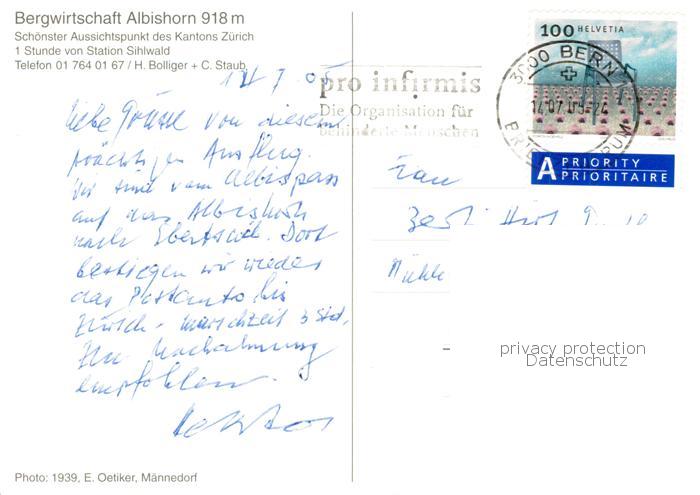 Bergwirtschaft Albishorn 918 m
Schönster Aussichtspunkt des Kantons Zürich
1 Stunde von Station Sihlwald
Telefon 01 764 01 67 / H. Bolliger + C. Staub
7 05
Liebe Grüsse von diesem
prächtigen Ausflug.
Wir sind vom Albispass
auf das Albishorn
nach Ebertswil. Dort
bestiegen wir wieder
das Postauto bis
Zürich. Marschzeit 3 Std.
Zur Nachahmung
empfohlen.
Photo: 1939, E. Oetiker, Männedorf
pro infirmis
Die Organisation für
behinderte Menschen
100 HELVETIA
3000 BERN
14.07.05-24
A PRIORITY
PRIORITAIRE
Frau
Mühle
privacy protection
Datenschutz